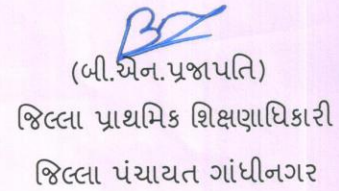 (બી.એન.પ્રજાપતિ)
જિલ્લા પ્રાથમિક શિક્ષણાધિકારી
જિલ્લા પંચાયત ગાંધીનગર